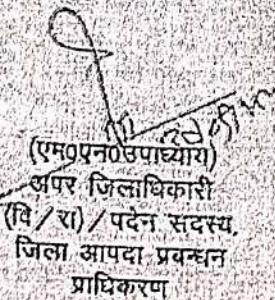 (एम0एन0उपाध्याय)
अपर जिलाधिकारी
(वि/रा)/पदेन सदस्य,
जिला आपदा प्रबन्धन
प्राधिकरण